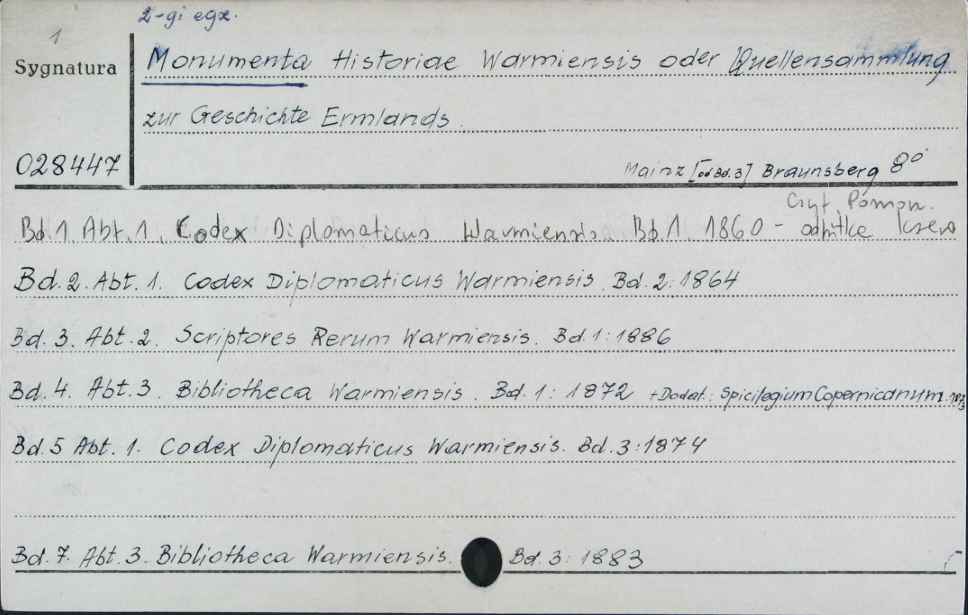 2-gi egz.
1
Sygnatura
Monumenta Historiae Warmiensis oder Quellensammlung
zur Geschichte Ermlands.
028447
Mainz [od Bd. 3] Braunsberg 8°
Czyt. Pomoцn.
Bd. 1. Abt. 1. Codex Diplomaticus Warmiensis. Bd 1. 1860 - odbitka ksero
Bd. 2. Abt. 1. Codex Diplomaticus Warmiensis. Bd. 2: 1864
Bd. 3. Abt. 2. Scriptores Rerum Warmiensis. Bd. 1: 1886
Bd. 4. Abt. 3. Bibliotheca Warmiensis. Bd. 1: 1872 + Dodat.: Spicilegium Copernicanum. 1873
Bd. 5 Abt. 1. Codex Diplomaticus Warmiensis. Bd. 3: 1874
Bd. 7. Abt. 3. Bibliotheca Warmiensis. Bd. 3: 1883